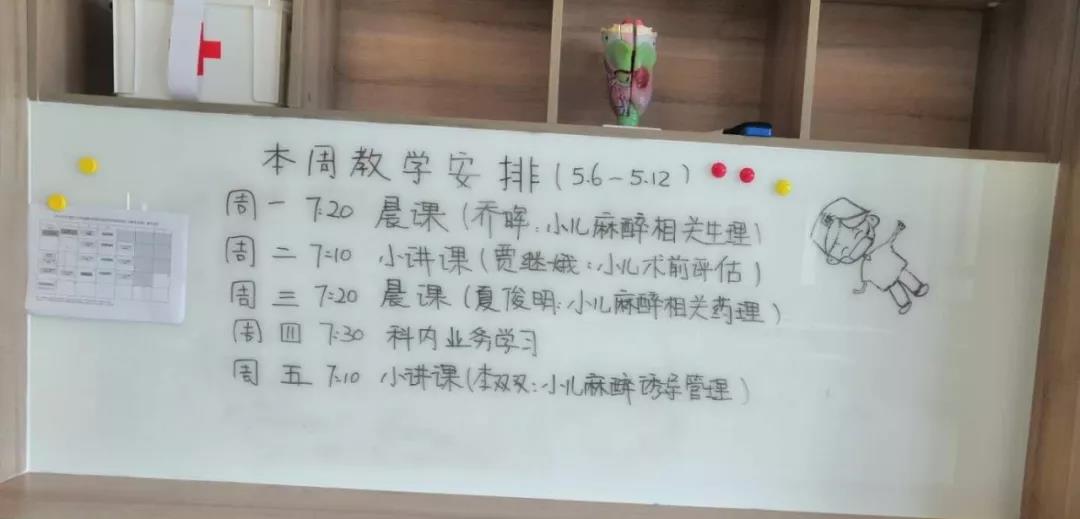 本周教学安排(5.6-5.12)
周一 7:20 晨课(乔晖:小儿麻醉相关生理)
周二 7:10 小讲课(贾继娥:小儿术前评估)
周三 7:20 晨课(夏俊明:小儿麻醉相关药理)
周四 7:30 科内业务学习
周五 7:10 小讲课(李双双:小儿麻醉诱导管理)